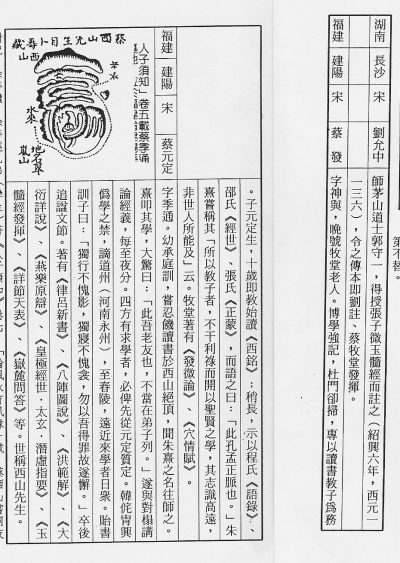 湖南 長沙 宋 劉允中
師茅山道士郭守一,得授張子微玉髓經而註之(紹興六年,西元一
一三六),令之傳本即劉註、蔡牧堂發揮。
福建 建陽 宋 蔡發
字神與,晚號牧堂老人。博學強記,杜門卻掃,專以讀書教子為務
。子元定生,十歲即教始讀《西銘》;稍長,示以程氏《語錄》、
邵氏《經世》、張氏《正蒙》,而語之曰:「此孔孟正脈也。」朱
熹嘗稱其「所以教子者,不干利祿而開以聖賢之學,其志識高遠,
非世人所能及」云。牧堂著有《發微論》、《穴情賦》。
福建 建陽 宋 蔡元定
字季通。幼承庭訓,嘗忍饑讀書於西山絕頂,聞朱熹之名往師之。
熹叩其學,大驚曰:「此吾老友也,不當在弟子列。」遂與對榻講
論經義,每至夜分。四方有求學者,必俾先從元定質定。韓侂冑興
偽學之禁,謫道州(河南永州),至舂陵,遠近來學者日眾。貽書
訓子曰:「獨行不愧影,獨寢不愧衾,勿以吾得罪故遂懈。」卒後
追謚文節。著有《律呂新書》、《八陣圖說》、《洪範解》、《大
衍詳說》、《燕樂原辯》、《皇極經世.太玄.潛虛指要》、《玉
髓經發揮》、《詳節天表》、《嶽麓問答》等。世稱西山先生。
人子須知」卷五載蔡季通
蔡西山先生自卜壽藏
西山
水來
地名翠
嵐山